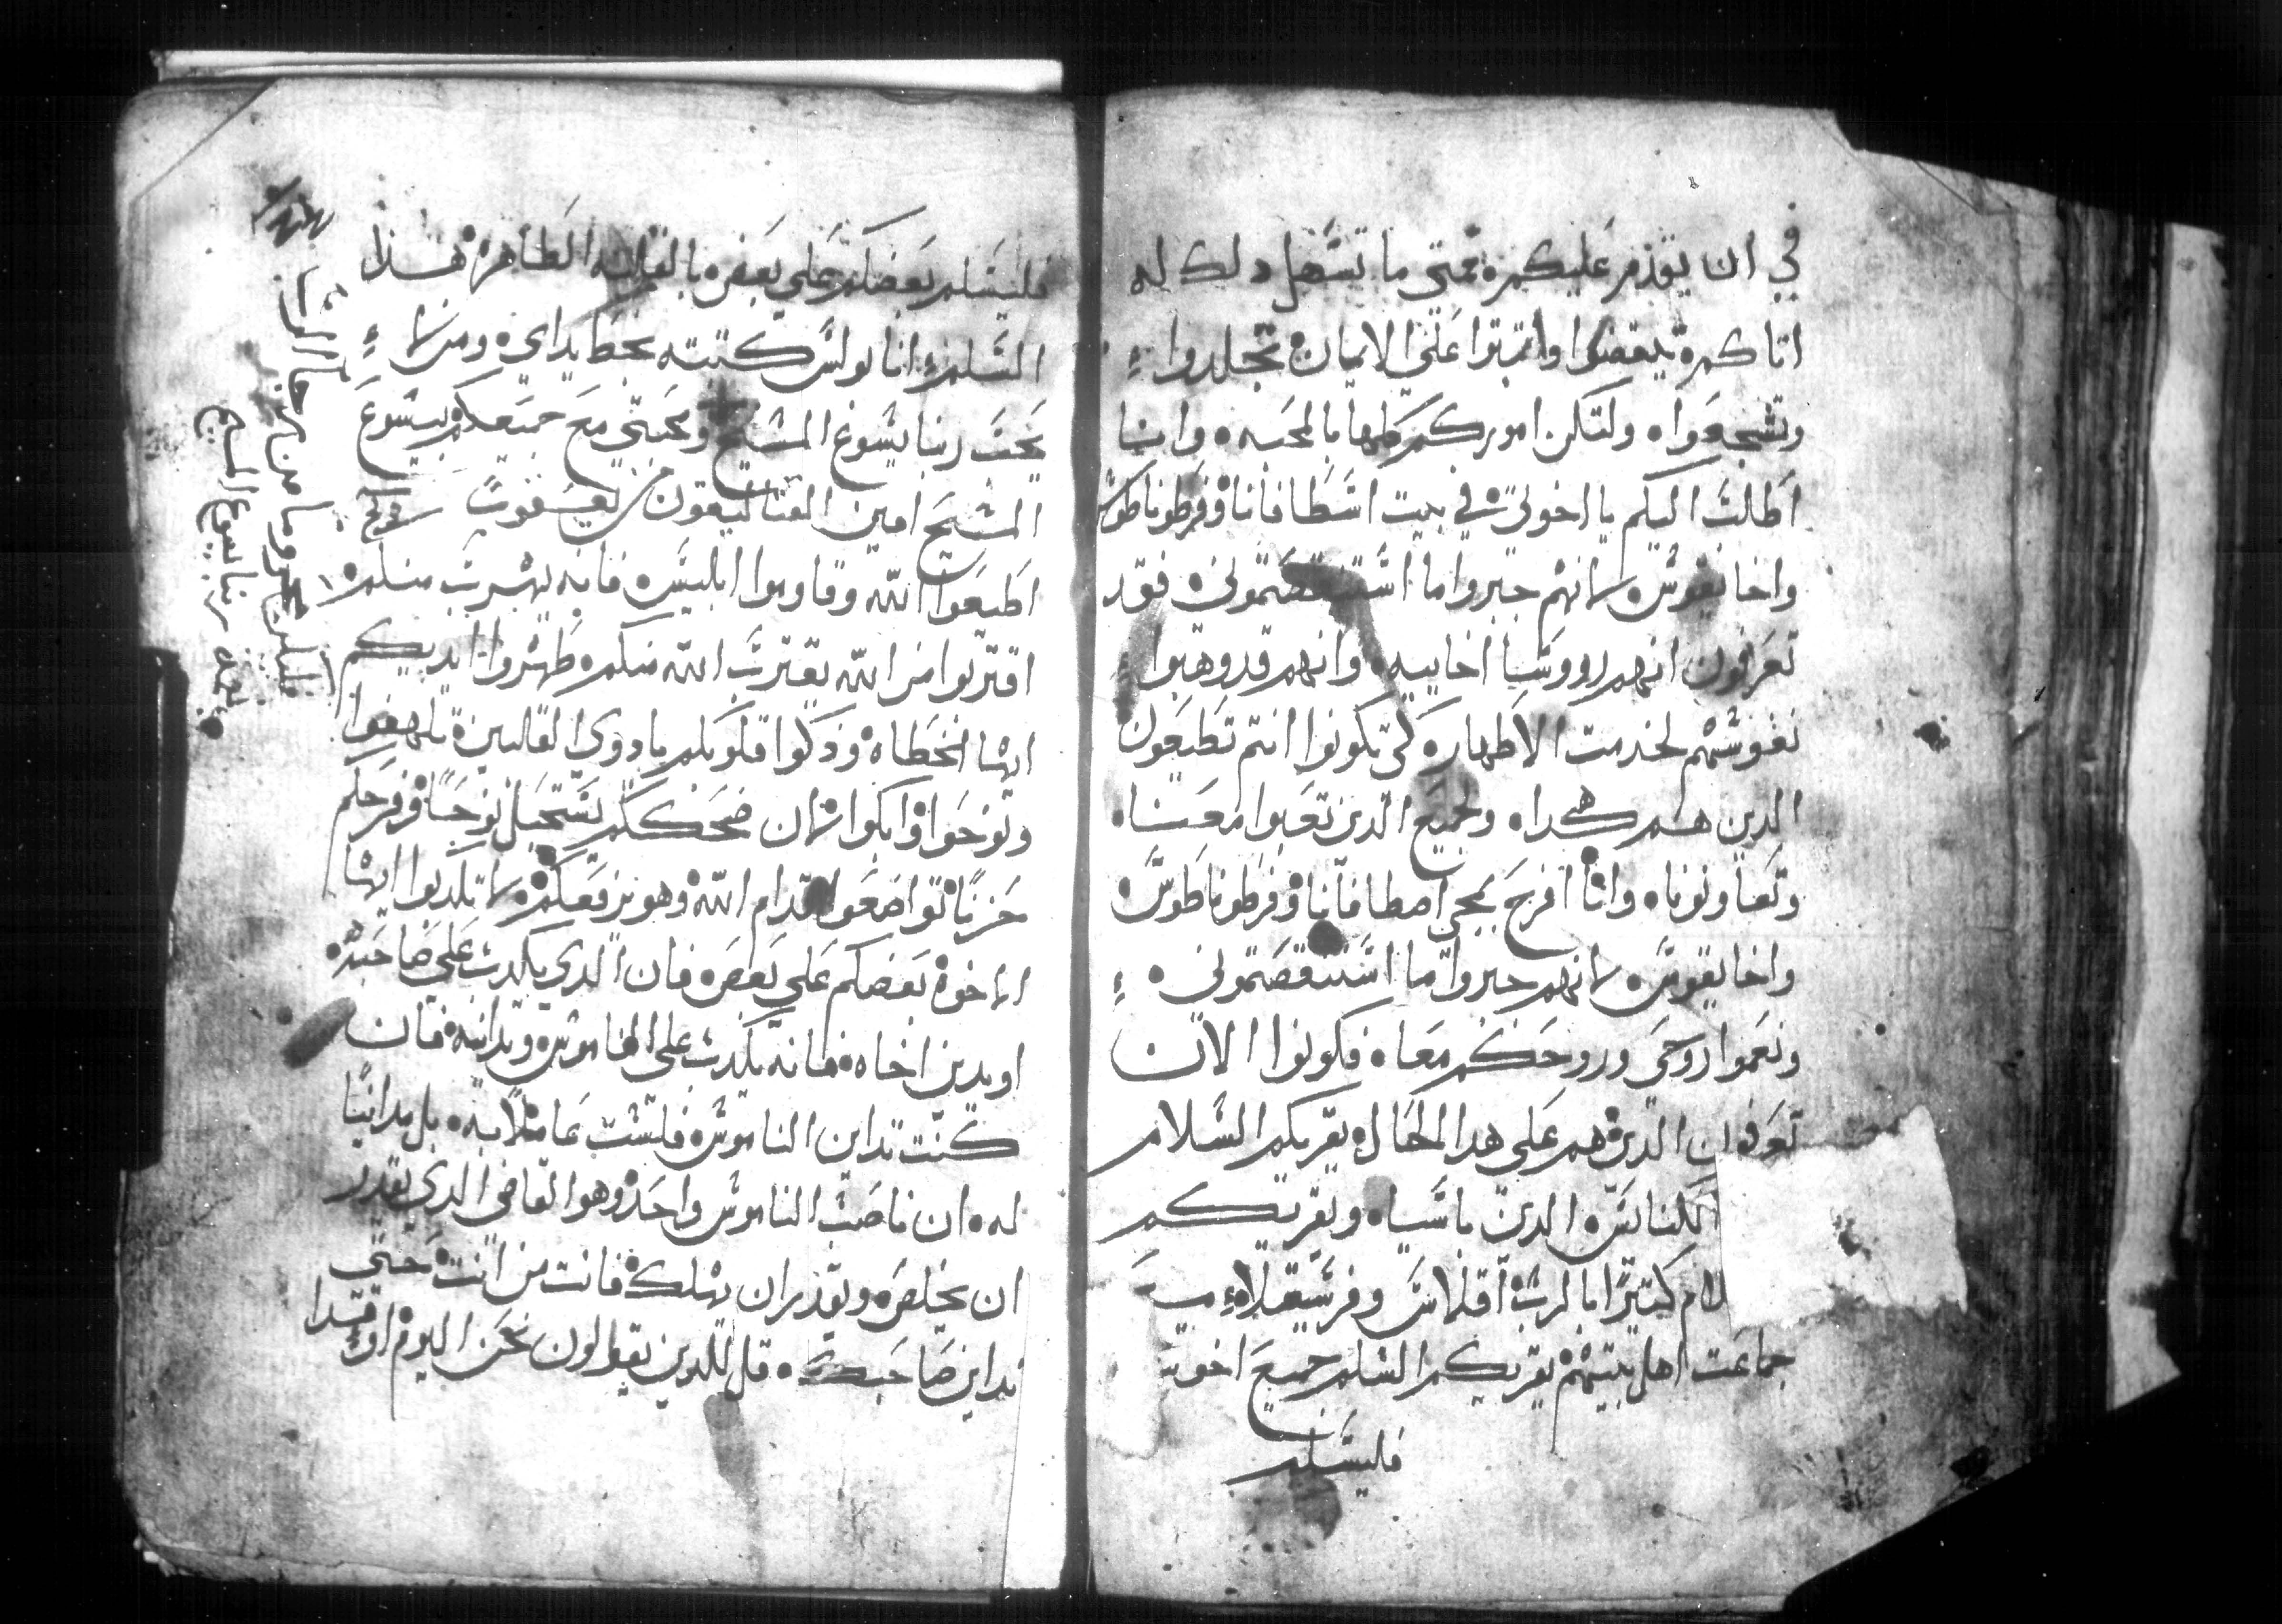 في ان يقدم عليكم ه فمتي ما تسهل دلك له
اتاكم ه تيقضوا واتبتوا علي الايمان ه تجلدوا
وتشجعوا ه ولتكن اموركم كلها بالمحبه ه وانما
اطالب اليكم يا اخوتي ه في بيت اسطافانا ه وفرطوناطوس
واخايقوس ه لانهم جبروا ما استنقصتموني ه فقد
تعرفون انهم رووسا اخاييه ه وانهم قد وهبوا
نفوسهم لخدمت الاطهار ه كي تكونوا انتم تطيعون
الدين هم هكدا ه ولجميع الدين تعبوا معنا ه
وتعاونونا ه وانا افرح بمجي اصطافانا ه وفرطوناطوس ه
واخايقوس ه لانهم جبروا ما استنقصتموني ه
ونعموا روحي وروحكم معا ه فكونوا الان
تعرفون الدين هم علي هدا الحال ه يقريكم السلام
كلنايس ه الدين باسيا ه ويقريكم
لام كتيرا بالرب ه اقلاس وفرسقلاء
جماعت اهل بيتهم ه يقريكم السلم جميع اخوت
فليسلم
فليسلم بعضكم علي بعض ه بالقبله الطاهره ه هدا
السلم انا بولس كتبته بخط يداي ه ومن لا
يحب ربنا يسوع المسيح ومحبتي مع جميعكم بيسوع
المسيح امين القتاليقون من يعقوب
اطيعوا الله وقاوموا ابليس ه فانه يهرب منكم ه
اقتربوا من الله يقترب الله منكم ه طهروا ايديكم
ايها الخطاه ه وزكوا قلوبكم يا دوي القلبين ه تلهفوا
ونوحوا ه وابكوا ه لان ضحككم يستحيل نوحا ه وفرحكم
حزنا ه تواضعوا قدام الله ه وهو يرفعكم ه لا تكدبوا ايها
الاخوه بعضكم علي بعض ه فان الدي يكدب علي صاحبه ه
او يدين اخاه ه فانه يكدب علي الناموس ه ويدانيه ه فان
كنت تداين الناموس ه فلست عاملا به ه بل مداينا
له ه ان ناصب الناموس واحد ه وهوا القاضي الدي يقدر
ان يخلص ه ويقدر ان يهلك ه فانت من انت ه حتي
تداين صاحبك ه قل للدين يقولون نحن اليوم او غدا
فليكن محروما من
نعمه ربنا يسوع المسيح